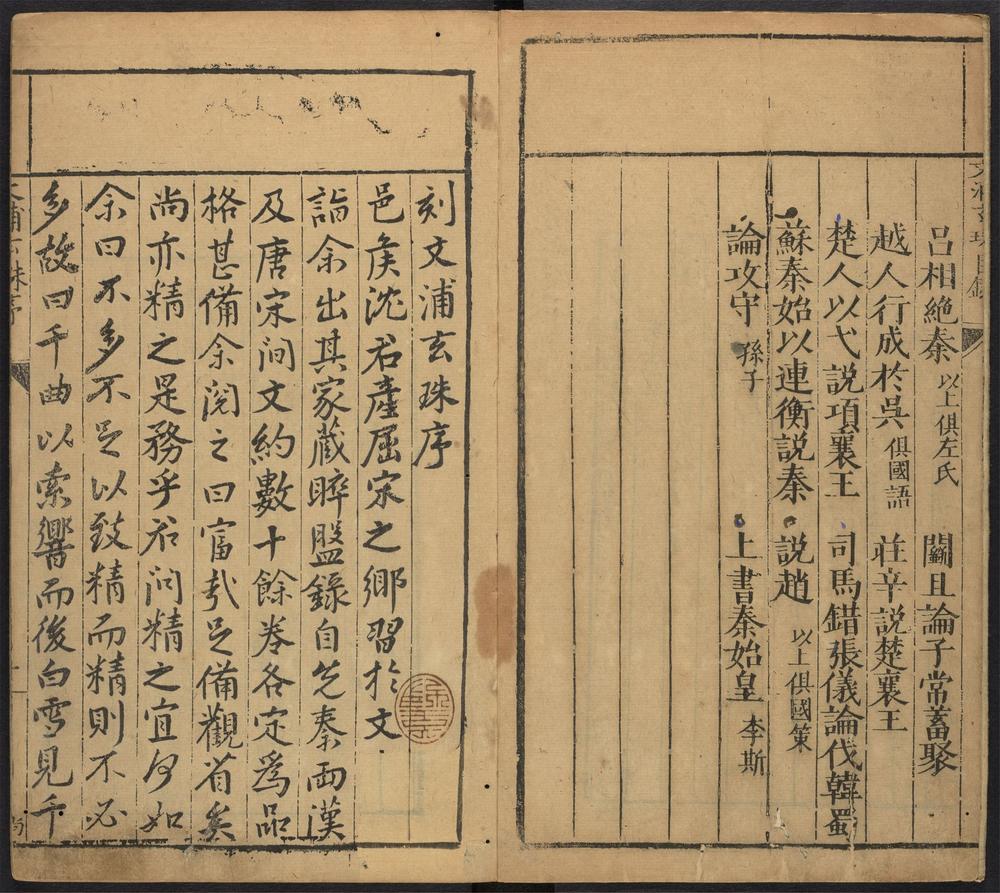 呂相絕秦 以上俱左氏 鬭且論子常蓄聚
越人行成於吳 俱國語 莊辛説楚襄王
楚人以弋説項襄王 司馬錯張儀論伐韓蜀
蘇秦始以連衡説秦 説趙 以上俱國策
論攻守 孫子 上書秦始皇 李斯
刻文浦玄珠序
邑矦沈君產屈宋之鄉習於文
詣余出其家藏睟盤錄自先秦兩漢
及唐宋間文約數十餘卷各定為品
格甚備余閱之曰富哉足備觀省矣
尚亦精之是務乎君問精之宜何如
余曰不多不足以致精而精則不必
多故曰千曲以索響而後白雪見千